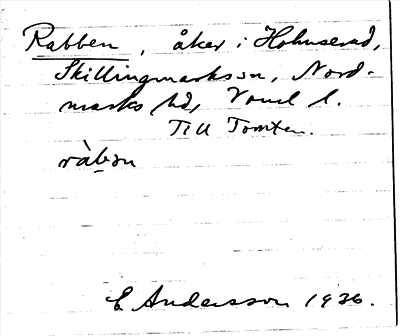 Rabben, åker i Holmserud,
Skillingmarks sn, Nord-
marks hd, Vrml l.
Till Tomten.
E Andersson 1936.